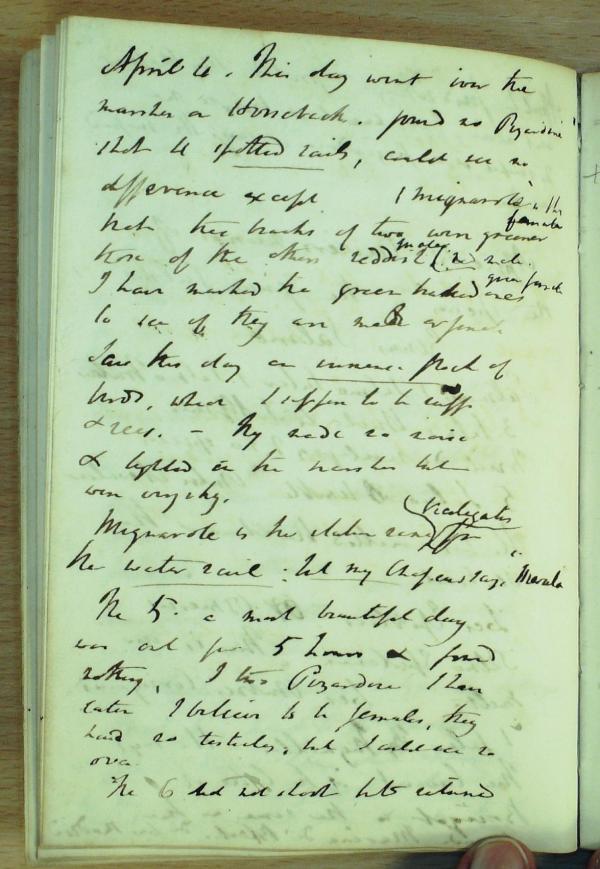 April 4. This day went over the
marshes on Horseback. found no Pizardine
shot 4 spotted rails, could see no
difference except 1 mignarole in the
female
that the backs of two were greener
males
those of the others reddish
green female
I have marked the green backed ones
to see if they are male or female
Saw this day an immense flock of
birds, which I suppose to be ruffs
& rees. - They made no noise
& lighted in the marshes but
were very shy.
Mignarole is the Italian name for
the water rail : but my Chasseur say,
The 5. a most beautiful day
was out for 5 hours & found
nothing. I two Pizardine I have
eaten I believe to be females, they
had no testicles, but I could see no
ova
The 6 did not shoot but returned